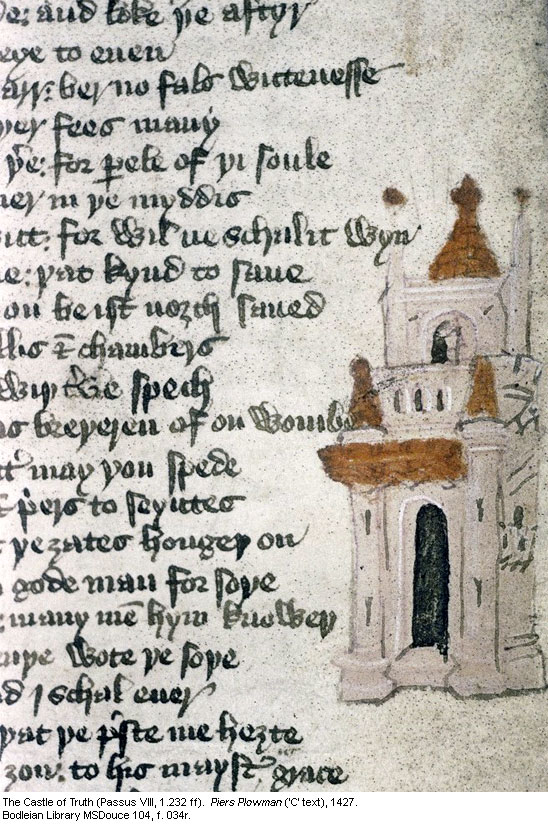 and loke þe aftyr
to euen
ber no fals wittenesse
fees many
for pele of þi soule
in þe myddis
for wil ne schul it wyn
þat kynd to saue
ou be ist noȝth saued
& chambers
spech
breþeren of on wombe
may ȝou spede
pers to seyntes
þe ȝates hongeþ on
gode man for soþe
many me hym knoweþ
wote þe soþe
j schal euer
þat þe pste me heȝte
ȝou: to his mayst grace
The Castle of Truth (Passus VIII, 1.232 ff). Piers Plowman ('C' text), 1427.
Bodleian Library MSDouce 104, f. 034r.